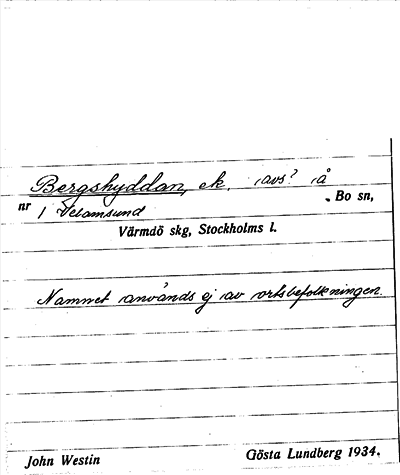 Bergshyddan, ek. avs? å
nr 1 Velamsund Bo sn,
Värmdö skg, Stockholms l.
Namnet används ej av ortsbefolkningen.
John Westin Gösta Lundberg 1934.